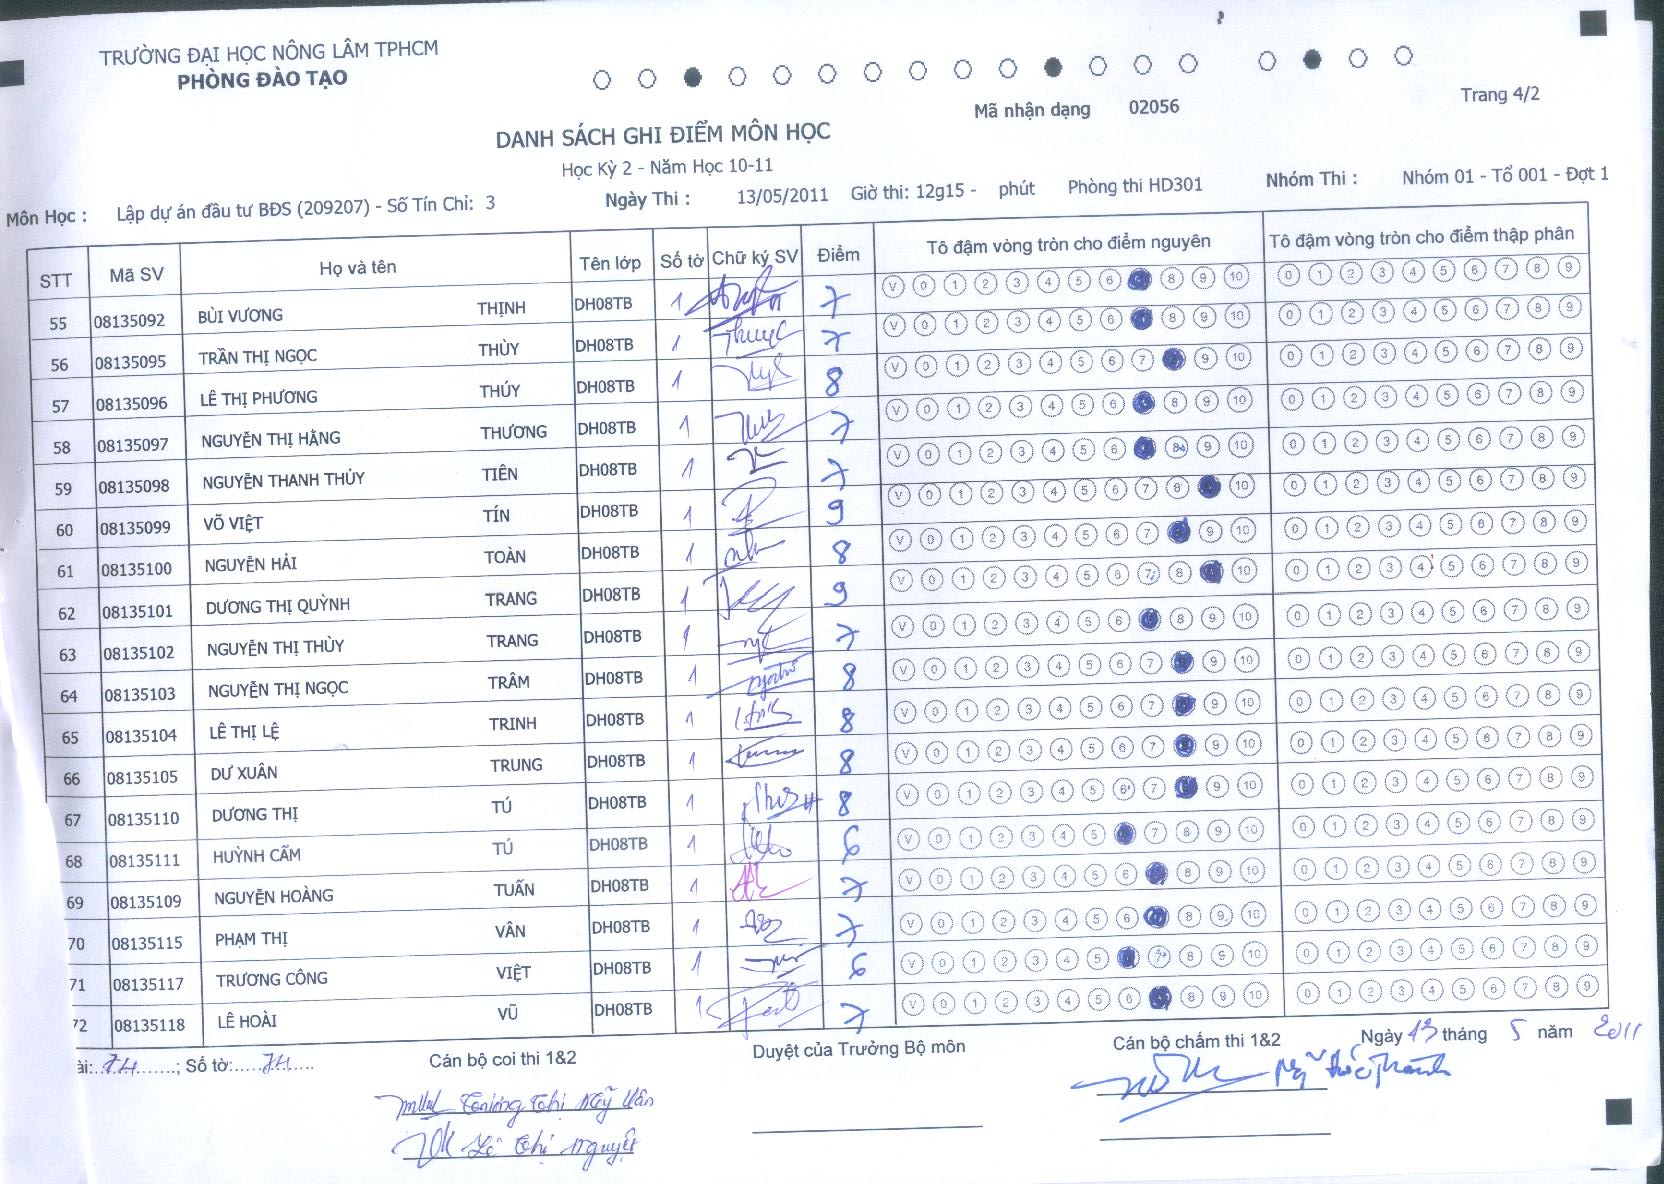 TRƯỜNG ĐẠI HỌC NÔNG LÂM TPHCM
PHÒNG ĐÀO TẠO
Mã nhận dạng 02056
Trang 4/2
DANH SÁCH GHI ĐIỂM MÔN HỌC
Học Kỳ 2 - Năm Học 10-11
Môn Học : Lập dự án đầu tư BĐS (209207) - Số Tín Chỉ: 3 Ngày Thi : 13/05/2011 Giờ thi: 12g15 - phút Phòng thi HD301 Nhóm Thi : Nhóm 01 - Tổ 001 - Đợt 1
STT Mã SV Họ và tên Tên lớp Số tờ Chữ ký SV Điểm Tô đậm vòng tròn cho điểm nguyên Tô đậm vòng tròn cho điểm thập phân
55 08135092 BÙI VƯƠNG THỊNH DH08TB 1 7 V 0 1 2 3 4 5 6 8 9 10 0 1 2 3 4 5 6 7 8 9
56 08135095 TRẦN THỊ NGỌC THÙY DH08TB 1 7 V 0 1 2 3 4 5 6 8 9 10 0 1 2 3 4 5 6 7 8 9
57 08135096 LÊ THỊ PHƯƠNG THÚY DH08TB 1 8 V 0 1 2 3 4 5 6 7 9 10 0 1 2 3 4 5 6 7 8 9
58 08135097 NGUYỄN THỊ HẰNG THƯƠNG DH08TB 1 7 V 0 1 2 3 4 5 6 8 9 10 0 1 2 3 4 5 6 7 8 9
59 08135098 NGUYỄN THANH THỦY TIÊN DH08TB 1 7 V 0 1 2 3 4 5 6 8 9 10 0 1 2 3 4 5 6 7 8 9
60 08135099 VÕ VIỆT TÍN DH08TB 1 9 V 0 1 2 3 4 5 6 7 8 10 0 1 2 3 4 5 6 7 8 9
61 08135100 NGUYỄN HẢI TOÀN DH08TB 1 8 V 0 1 2 3 4 5 6 7 9 10 0 1 2 3 4 5 6 7 8 9
62 08135101 DƯƠNG THỊ QUỲNH TRANG DH08TB 1 9 V 0 1 2 3 4 5 6 7 8 10 0 1 2 3 4 5 6 7 8 9
63 08135102 NGUYỄN THỊ THÙY TRANG DH08TB 1 7 V 0 1 2 3 4 5 6 8 9 10 0 1 2 3 4 5 6 7 8 9
64 08135103 NGUYỄN THỊ NGỌC TRÂM DH08TB 1 8 V 0 1 2 3 4 5 6 7 9 10 0 1 2 3 4 5 6 7 8 9
65 08135104 LÊ THỊ LỆ TRINH DH08TB 1 8 V 0 1 2 3 4 5 6 7 9 10 0 1 2 3 4 5 6 7 8 9
66 08135105 DƯ XUÂN TRUNG DH08TB 1 8 V 0 1 2 3 4 5 6 7 9 10 0 1 2 3 4 5 6 7 8 9
67 08135110 DƯƠNG THỊ TÚ DH08TB 1 8 V 0 1 2 3 4 5 6 7 9 10 0 1 2 3 4 5 6 7 8 9
68 08135111 HUỲNH CẨM TÚ DH08TB 1 6 V 0 1 2 3 4 5 7 8 9 10 0 1 2 3 4 5 6 7 8 9
69 08135109 NGUYỄN HOÀNG TUẤN DH08TB 1 7 V 0 1 2 3 4 5 6 8 9 10 0 1 2 3 4 5 6 7 8 9
70 08135115 PHẠM THỊ VÂN DH08TB 1 7 V 0 1 2 3 4 5 6 8 9 10 0 1 2 3 4 5 6 7 8 9
71 08135117 TRƯƠNG CÔNG VIỆT DH08TB 1 6 V 0 1 2 3 4 5 7 8 9 10 0 1 2 3 4 5 6 7 8 9
72 08135118 LÊ HOÀI VŨ DH08TB 1 7 V 0 1 2 3 4 5 6 8 9 10 0 1 2 3 4 5 6 7 8 9
ài:.74.......; Số tờ:.....74.....
Cán bộ coi thi 1&2
Duyệt của Trưởng Bộ môn
Cán bộ chấm thi 1&2
Ngày 13 tháng 5 năm 2011
Trương Thị Mỹ Vân
Lê Thị Nguyệt